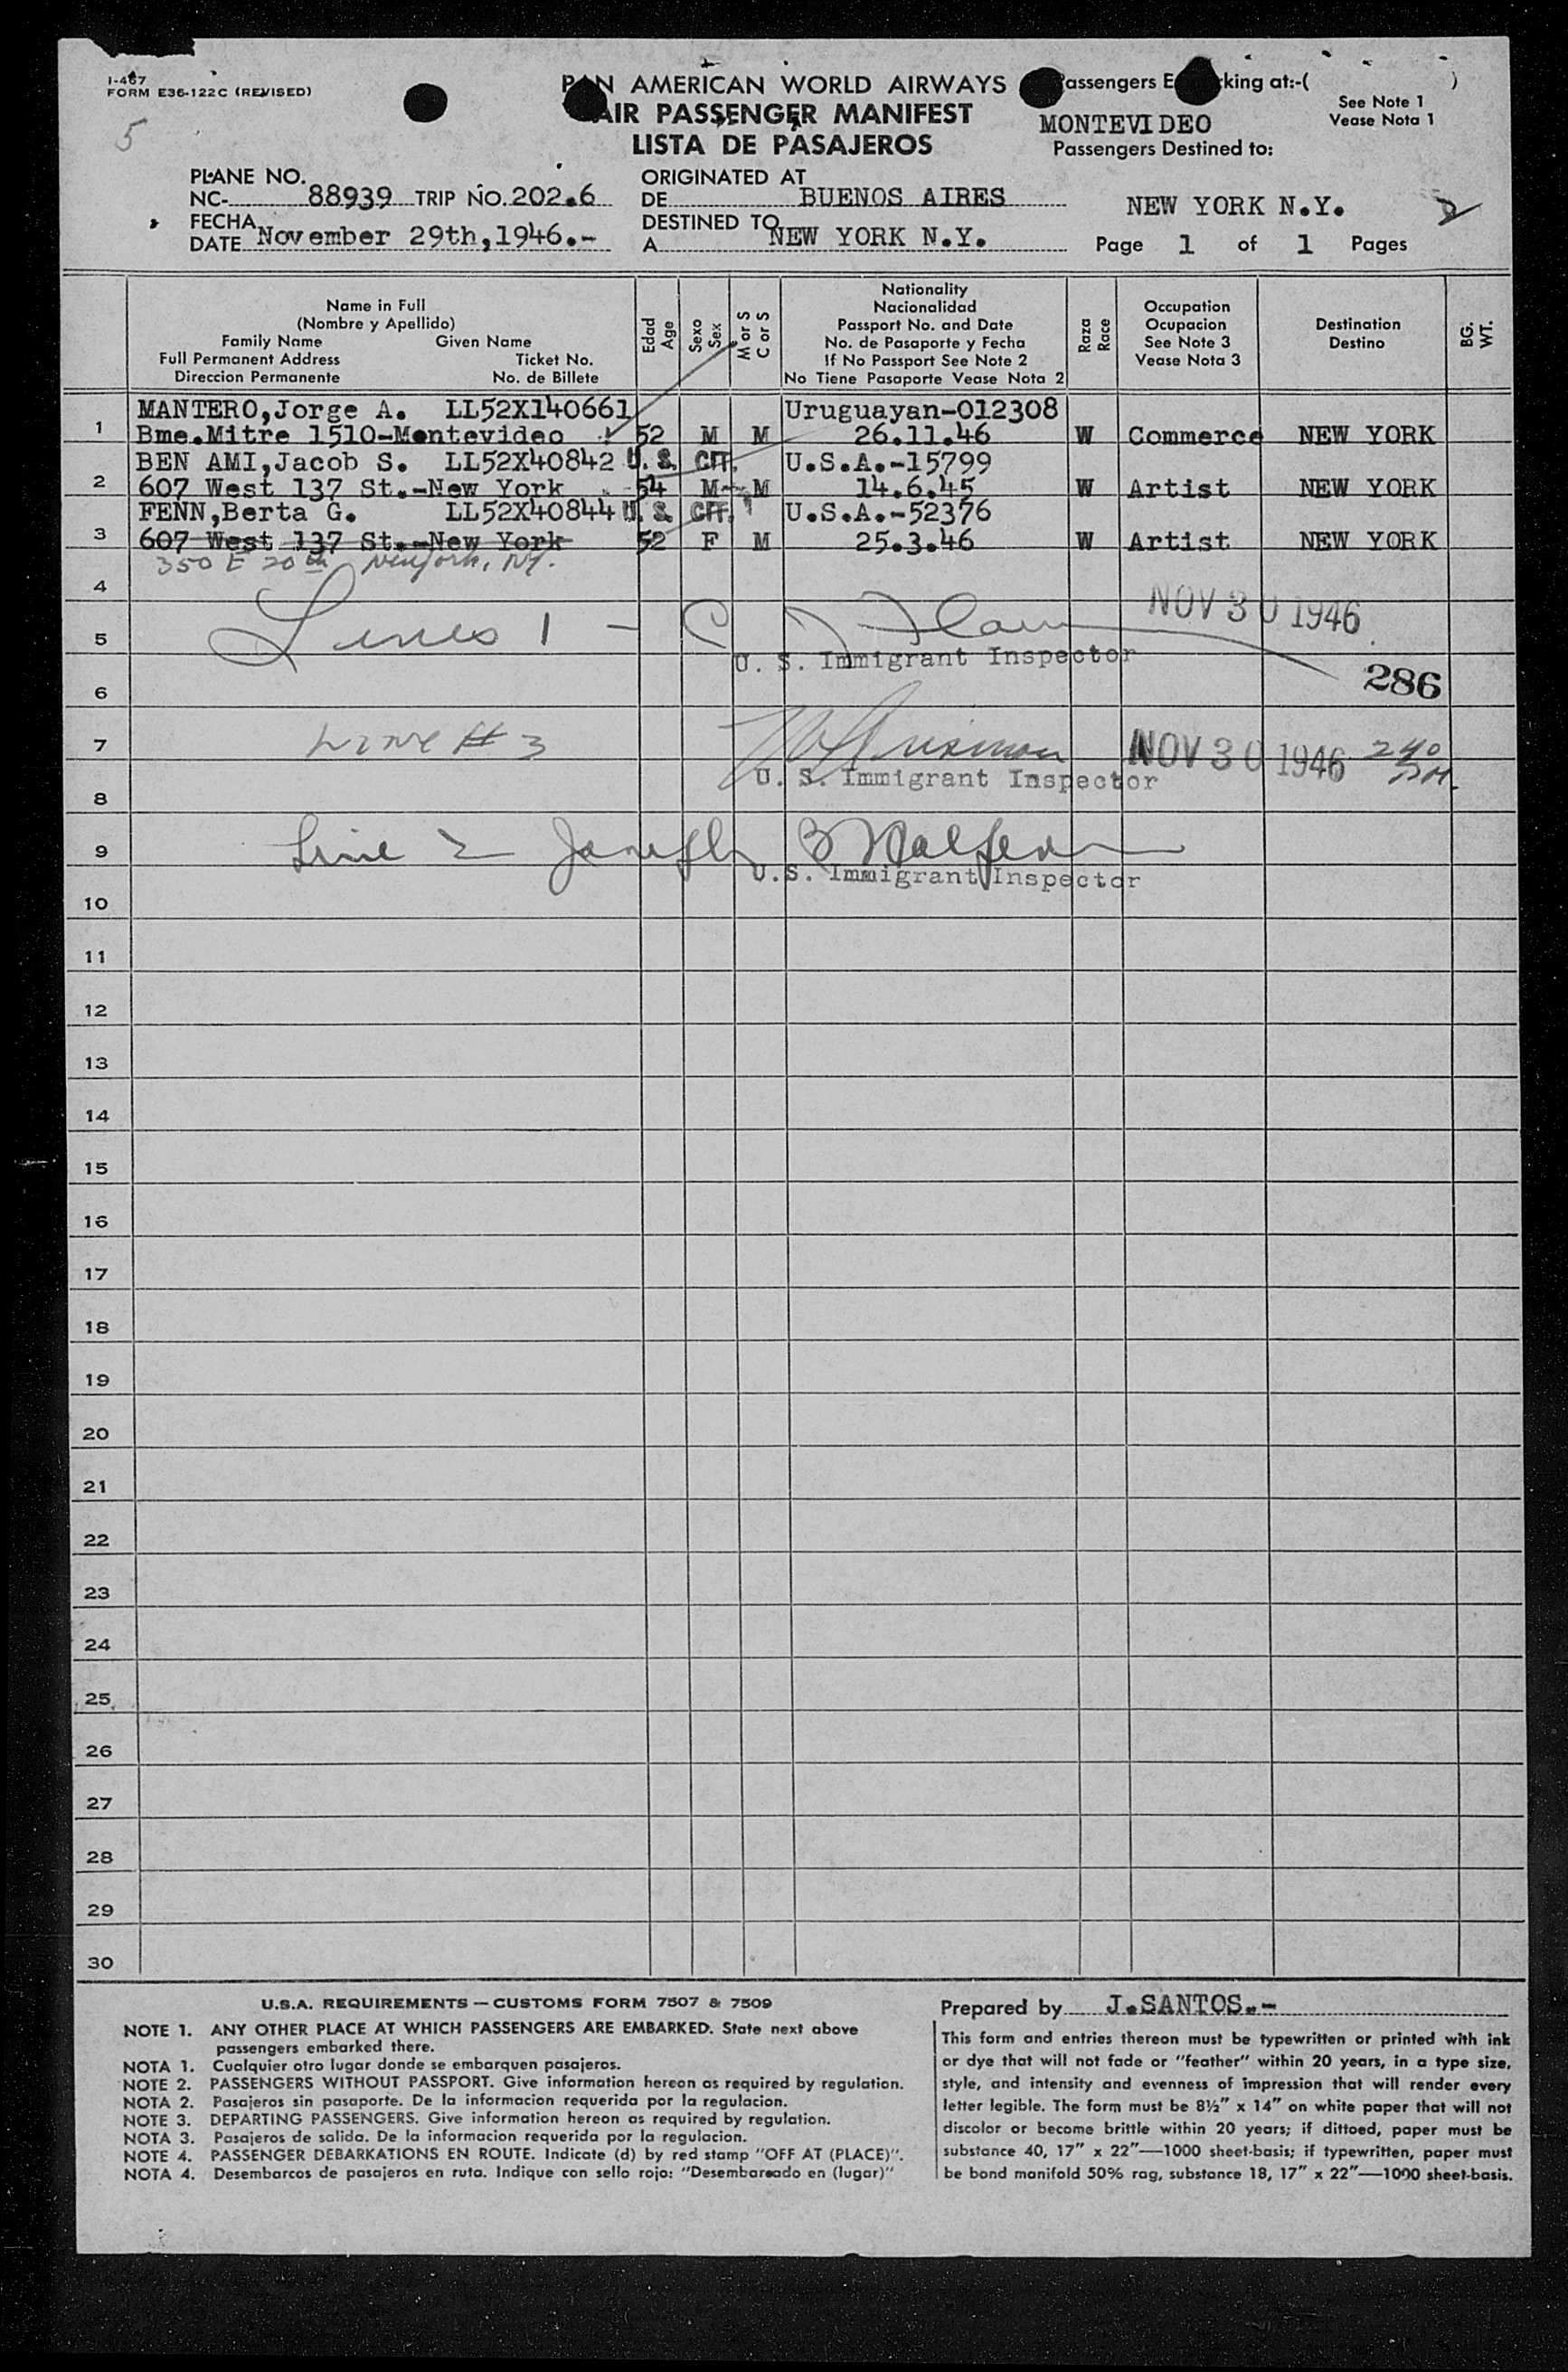 I-467
FORM E36-122C (REVISED)
5
PAN AMERICAN WORLD AIRWAYS
AIR PASSENGER MANIFEST
LISTA DE PASAJEROS
Passengers Embarking at:-( )
See Note 1
Vease Nota 1
MONTEVIDEO
Passengers Destined to:
NEW YORK N.Y.
2
Page 1 of 1 Pages
PLANE NO.
NC- 88939 TRIP NO. 202.6
FECHA
DATE November 29th,1946.-
ORIGINATED AT
DE BUENOS AIRES
DESTINED TO
A NEW YORK N.Y.
Name in Full
(Nombre y Apellido)
Family Name Given Name
Full Permanent Address Ticket No.
Direccion Permanente No. de Billete
Edad
Age
Sexo
Sex
M or S
C or S
Nationality
Nacionalidad
Passport No. and Date
No. de Pasaporte y Fecha
If No Passport See Note 2
No Tiene Pasaporte Vease Nota 2
Raza
Race
Occupation
Ocupacion
See Note 3
Vease Nota 3
Destination
Destino
BG.
WT.
MANTERO,Jorge A. LL52X140661 Uruguayan-012308
1 Bme.Mitre 1510-Montevideo 52 M M 26.11.46 W Commerce NEW YORK
BEN AMI,Jacob S. LL52X40842 U.S. CIT. U.S.A.-15799
2 607 West 137 St.-New York 54 M M 14.6.45 W Artist NEW YORK
FENN,Berta G. LL52X40844 U.S. CIT. U.S.A.-52376
3 607 West 137 St.-New York 52 F M 25.3.46 W Artist NEW YORK
350 E 20th New York, NY.
4
NOV 30 1946
5 Lines 1 -
U. S. Immigrant Inspector
286
6
7 Line # 3 NOV 30 1946 2 40 PM.
U. S. Immigrant Inspector
8
9 Line 2 Joseph
U.S. Immigrant Inspector
10
11
12
13
14
15
16
17
18
19
20
21
22
23
24
25
26
27
28
29
30
U.S.A. REQUIREMENTS — CUSTOMS FORM 7507 & 7509
NOTE 1. ANY OTHER PLACE AT WHICH PASSENGERS ARE EMBARKED. State next above
passengers embarked there.
NOTA 1. Cualquier otro lugar donde se embarquen pasajeros.
NOTE 2. PASSENGERS WITHOUT PASSPORT. Give information hereon as required by regulation.
NOTA 2. Pasajeros sin pasaporte. De la informacion requerida por la regulacion.
NOTE 3. DEPARTING PASSENGERS. Give information hereon as required by regulation.
NOTA 3. Pasajeros de salida. De la informacion requerida por la regulacion.
NOTE 4. PASSENGER DEBARKATIONS EN ROUTE. Indicate (d) by red stamp "OFF AT (PLACE)".
NOTA 4. Desembarcos de pasajeros en ruta. Indique con sello rojo: "Desembarcado en (lugar)"
Prepared by J.SANTOS.-
This form and entries thereon must be typewritten or printed with ink
or dye that will not fade or "feather" within 20 years, in a type size,
style, and intensity and evenness of impression that will render every
letter legible. The form must be 8½" x 14" on white paper that will not
discolor or become brittle within 20 years; if dittoed, paper must be
substance 40, 17" x 22"—1000 sheet-basis; if typewritten, paper must
be bond manifold 50% rag, substance 18, 17" x 22"—1000 sheet-basis.